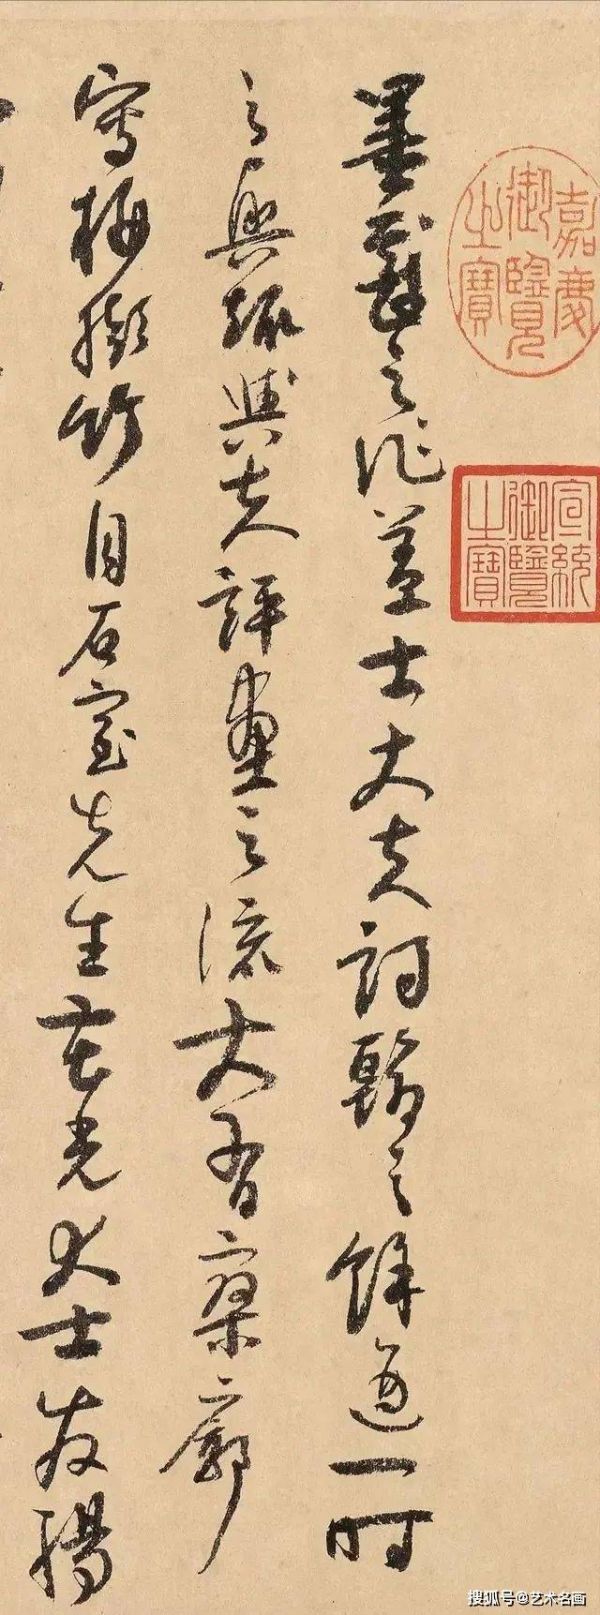 嘉慶御覽之寶
宣統御覽之寶
墨戲之作蓋士大夫詞翰之餘適一時
之興趣與夫評畫之流大有寥廓
寫梅擬竹自石室先生華光大士發揚
搜狐号@艺术名画